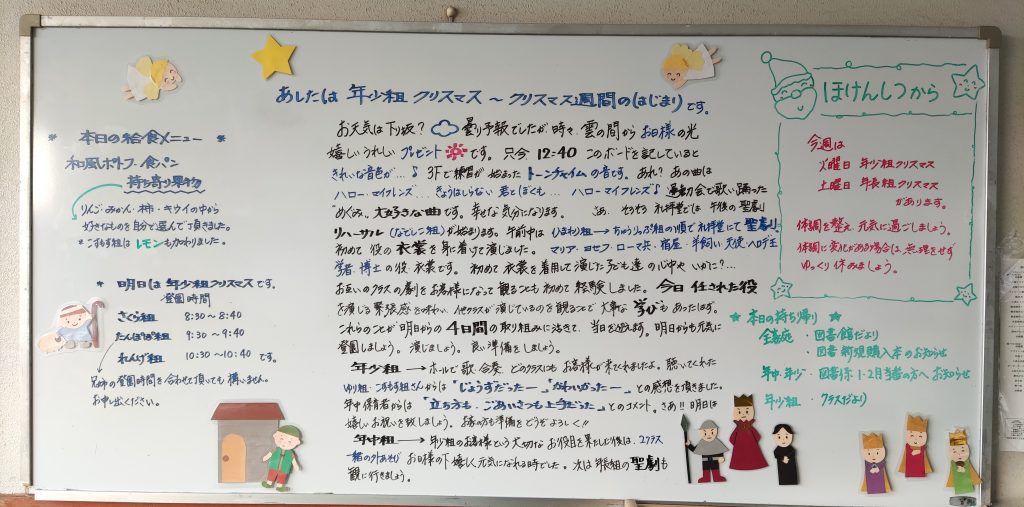 あしたは 年少組 クリスマス ～ クリスマス週間のはじまり です。
* 本日の給食メニュー *
和風ポトフ・食パン
持ち寄り果物
りんご・みかん・柿・キウイの中から
好きなものを自分で選んで頂きました。
*こすもす組は レモンも加わりました。
* 明日は 年少組クリスマス です。
登園時間
さくら組 8:30～8:40
たんぽぽ組 9:30～9:40
れんげ組 10:30～10:40 です。
兄姉の登園時間を合わせて頂いても 構いません。
お申し出ください。
お天気は下り坂? 曇り予報でしたが 時々、雲の間から お日様の光
嬉しい うれしい プレゼント です。 只今 12:40 このボードを記していると
きれいな音色が…♪ 3Fで 練習が 始まった トーンチャイムの音です。あれ? あの曲は
ハロー・マイフレンズ… きょうはしらない 君とぼくも… ハロー・マイフレンズ♪ 運動会で歌い踊った
大好きな曲です。幸せな気分になります。 さぁ、そろそろ 礼拝堂では 午後の聖劇
リハーサル(なでしこ組)が始まります。午前中は ひまわり組→ちゅうりっぷ組の順で 礼拝堂にて 聖劇
初めて 役の 衣裳を 身に着けて演じました。 マリア・ヨセフ・ローマ兵・宿屋・羊飼い・天使・ヘロデ王
学者・博士の役・衣裳です。 初めて 衣裳を着用して 演じた子ども達の心中や いかに?…
お互いのクラスの劇をお客様になって 観ることも 初めて 経験しました。今日 任された役
を演じる緊張感を味わい 他クラスが演じているのを観ることで 大事な 学びも あったはず。
これらのことが 明日からの 4日間の 取り組みに活きて、当日を迎えます。明日からも元気に
登園しましょう。演じましょう。良い準備をしましょう。
年少組 → ホールで 歌・合奏 どのクラスにも お客様が来てくれましたよ。聴いてくれた
ゆり組・こすもす組さんからは "じょうずだったー"、"かわいかったー" との感想を頂きました。
年中 保育者からは "立ち方も・ごあいさつも 上手だった" とのコメント。さあ!! 明日は
嬉しいお祝いを致しましょう。お家の方も準備をどうぞよろしく!!
年中組 → 年少組のお客様という大切な お役目を果たした後は、2クラス
一緒の外あそび お日様の下 嬉しく元気になれる時でした。次は 年長組の 聖劇も
観に行きましょう。
ほけんしつから
今週は
火曜日 年少組クリスマス
土曜日 年長組クリスマス
があります。
体調を整え、元気に過ごしましょう。
体調に変化がある場合は、無理をせず
ゆっくり休みましょう。
★ 本日の持ち帰り ★
全家庭 ・図書館だより
・図書 新規購入本のお知らせ
年中・年少・図書係 1・2月当番の方へ お知らせ
年少組 ・クラスだより